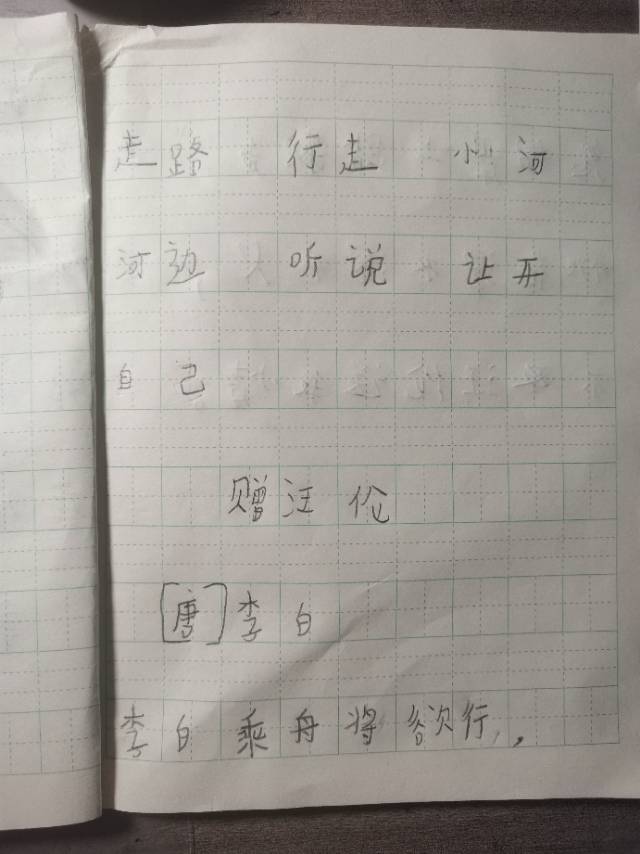 走路 行走 小河
河边 听说 让开
自己
赠汪伦
[唐]李白
李白乘舟将欲行,